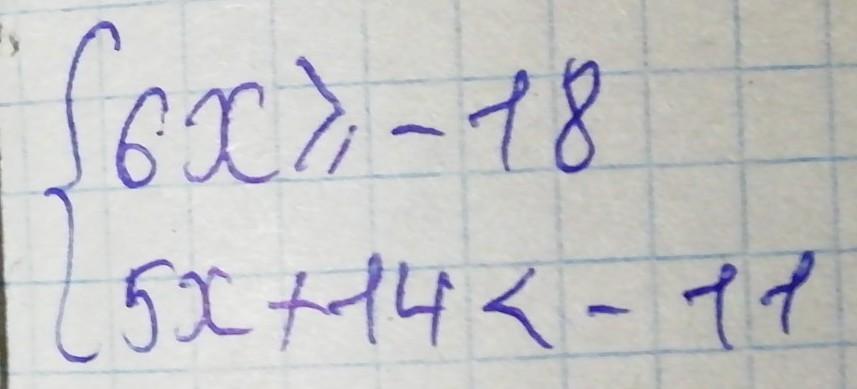 6x ⩾ -18
5x + 14 < -11